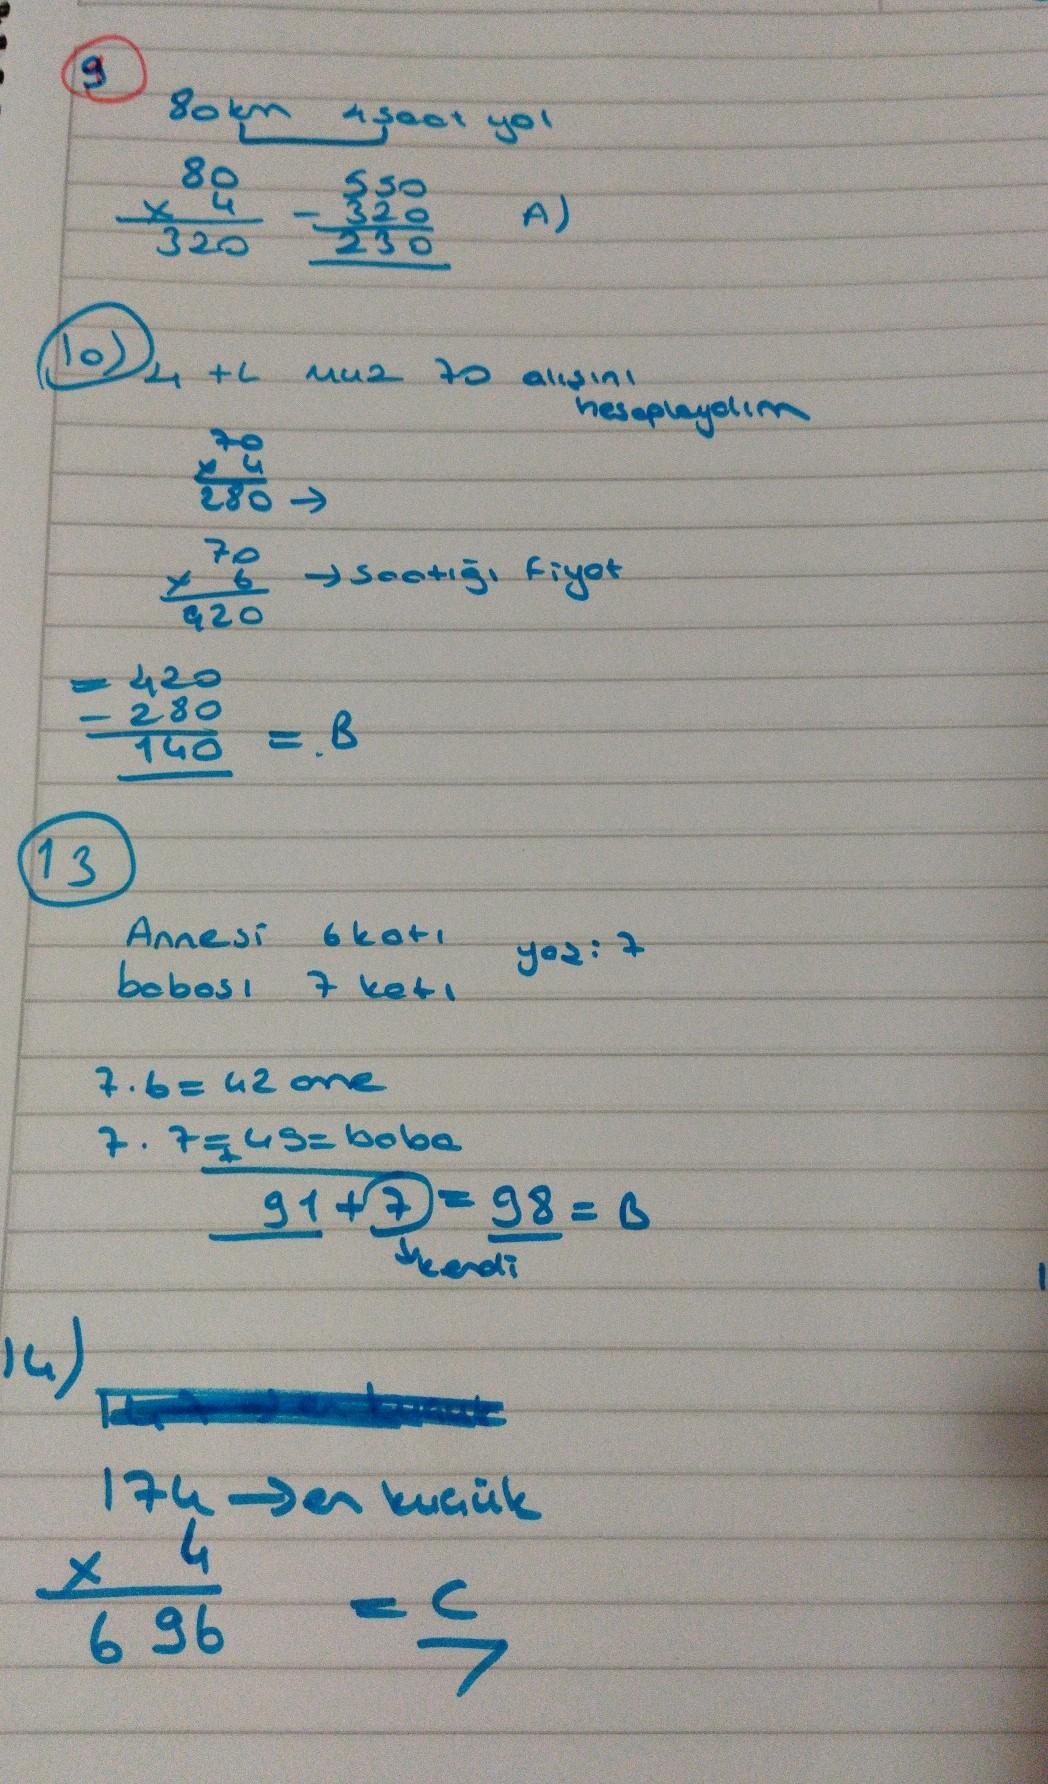 9
80km 4 saat yol
80 550
x 4 - 320 A)
320 230
10) 4 +L muz 70 alışını
hesaplaydım
70
x 4
280 →
70
x 6 → saatığı fiyat
420
= 420
- 280
140 = B
13
Annesi 6 katı yaz: 7
babası 7 katı
7.6 = 42 ane
7.7 = 49 = baba
+
91 + 7 = 98 = B
kendi
14)
174 → en kuçük
x 4
696 = C